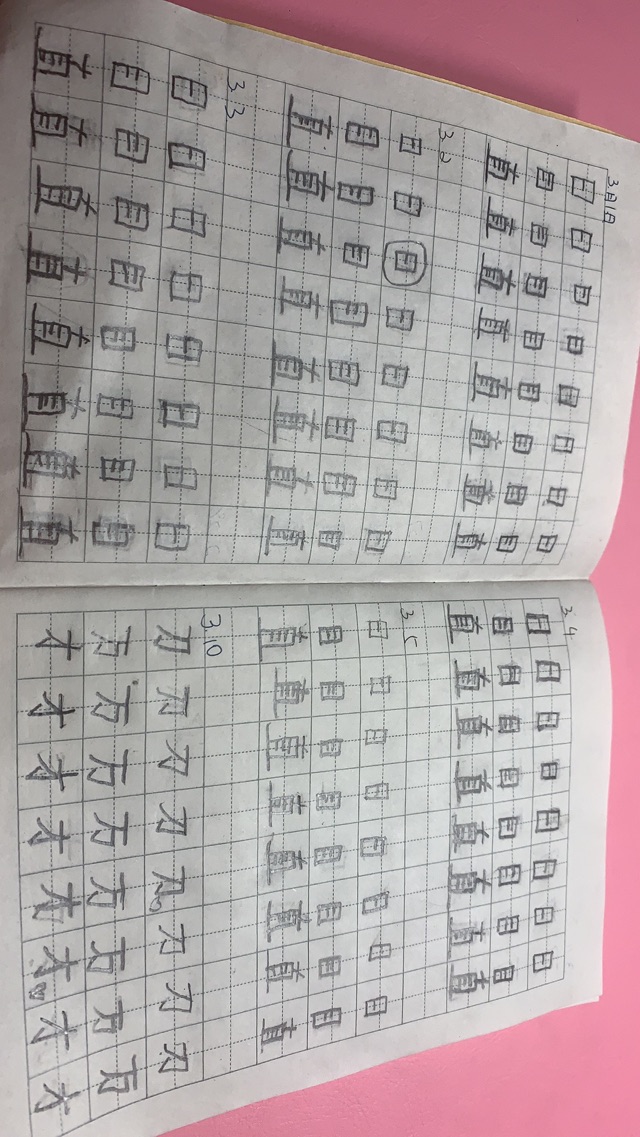 3月1日
日日日日日日日日
目目目目目目目目
直直直直直直直直
3.2
日日日日日日日日
目目目目目目目目
直直直直直直直直
3.3
日日日日日日日日
目目目目目目目目
直直直直直直直直
3.4
日日日日日日日日
目目目目目目目目
直直直直直直直直
3.5
日日日日日日日日
目目目目目目目目
直直直直直直直直
3.10
刀刀刀刀刀刀刀刀
万万万万万万万万
才才才才才才才才